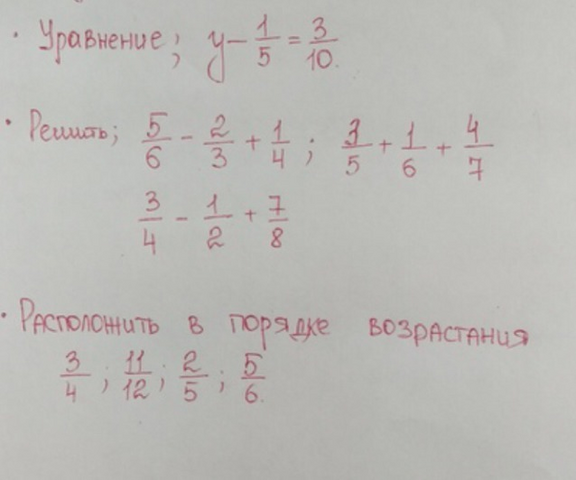 · Уравнение; y - 1/5 = 3/10.
· Решить; 5/6 - 2/3 + 1/4; 3/5 + 1/6 + 4/7
3/4 - 1/2 + 7/8
· Расположить в порядке возрастания
3/4; 11/12; 2/5; 5/6.